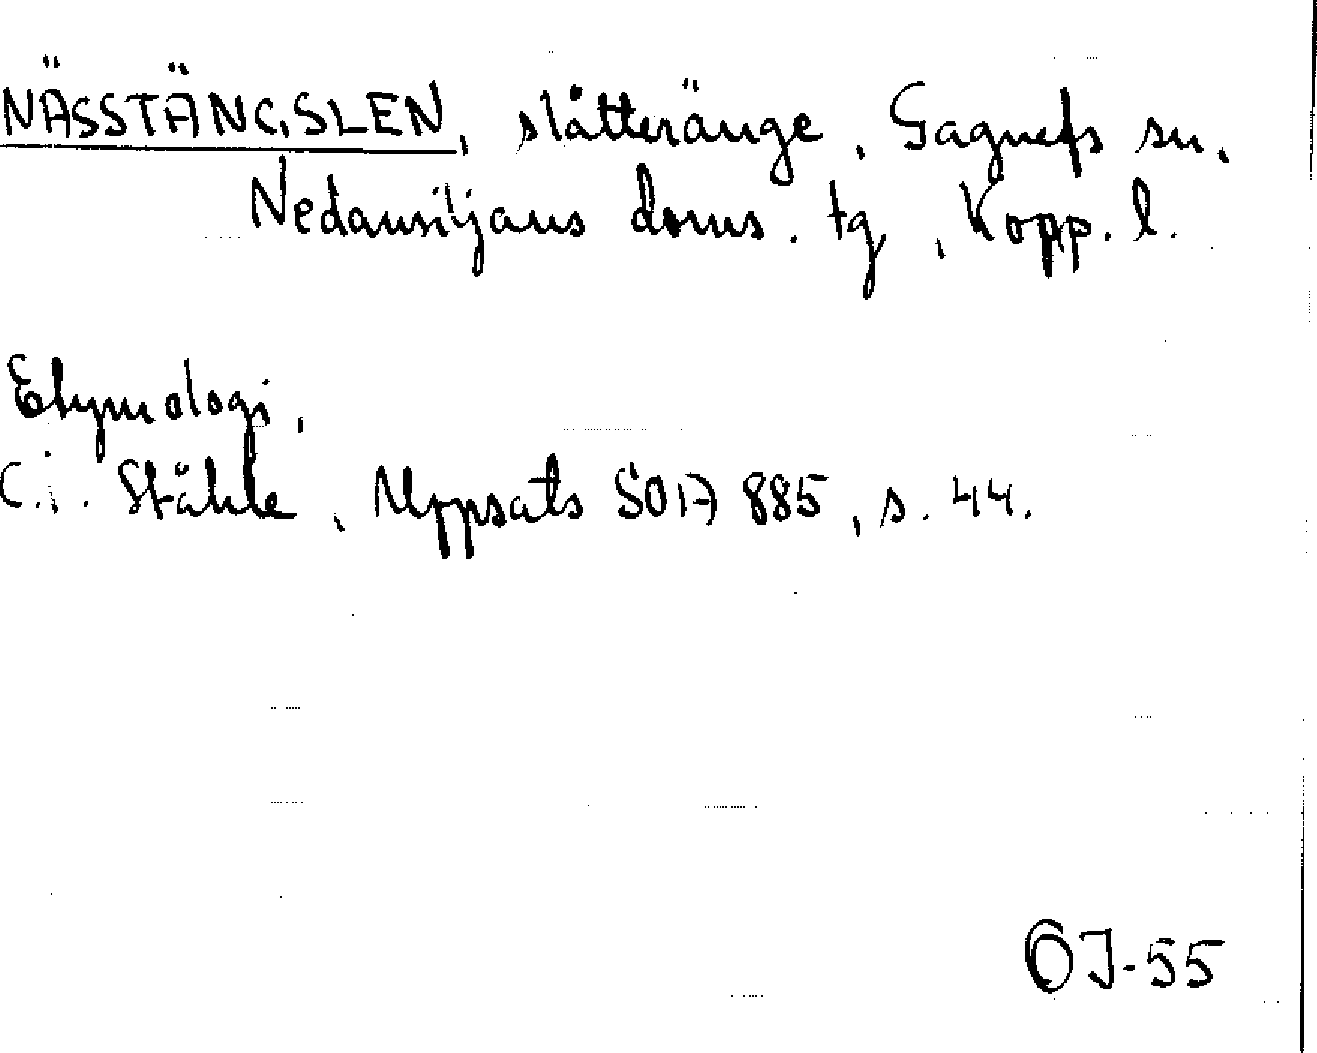 NÄSSTÄNGSLEN, slåtteränge, Gagnefs sn.
Nedansiljans doms. tg, Kopp. l.
Etymologi,
C.i. Ståhle, Uppsats SOÄ 885, s. 44.
ÖJ-55